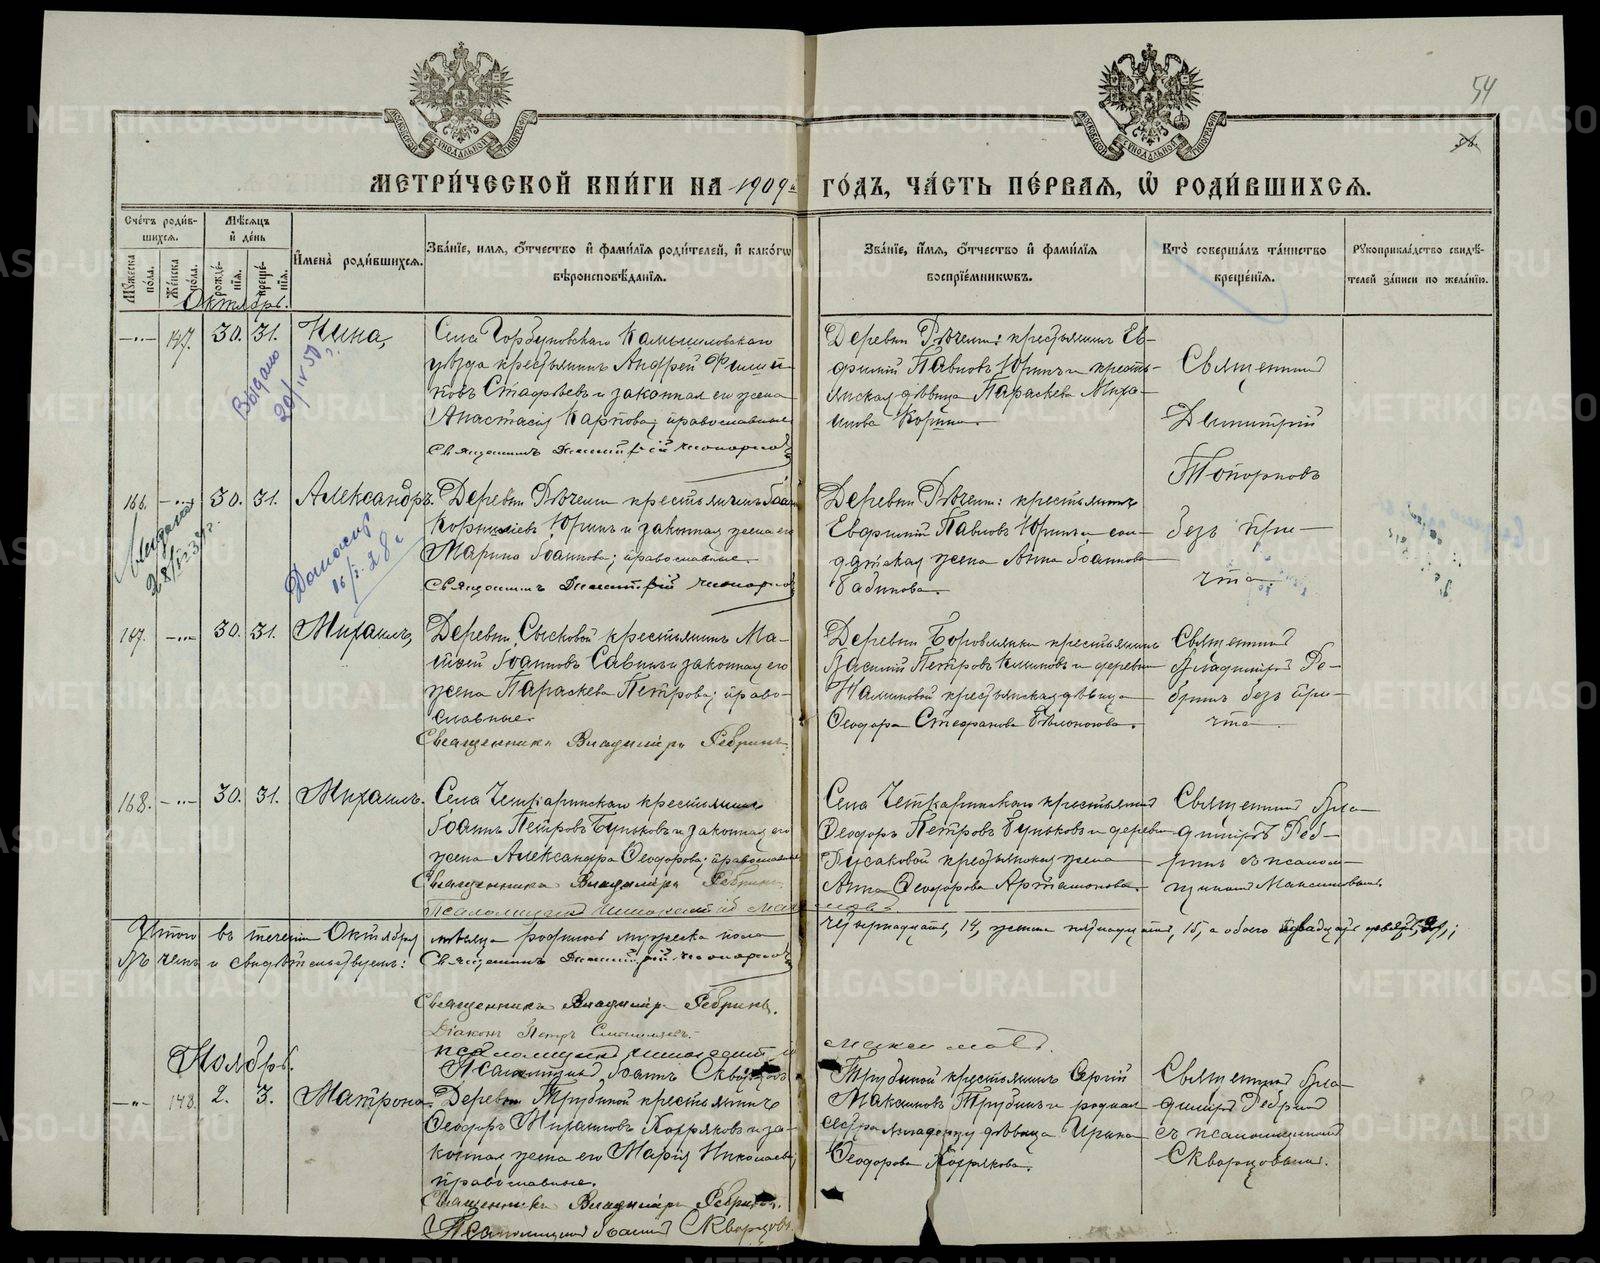 54
МЕТРИ́ЧЕСКОЙ КНИ́ГИ НА 1909 й ГО́ДЪ, ЧА́СТЬ ПЕ́РВАЯ, Ѡ РОДИ́ВШИХСЯ.
Сче́тъ роди́вшихся.
Мꙋ́жеска по́ла.
Же́нска по́ла.
Мѣ́сяцъ и҆ де́нь
рожде́нїя.
креще́нїя.
И҆мена̀ роди́вшихся.
Зва́нїе, имя, ѻ҆́тчество и҆ фами́лїя роди́телей, и҆ како́гѡ
вѣроисповѣ́данїя.
Зва́нїе, и҆́мя, ѻ҆́тчество и҆ фами́лїя
воспрїе́мниковъ.
Кто̀ соверша́лъ та́инство
креще́нїя.
Рꙋкоприкла́дство свидѣ́телей за́писи по жела́нїю.
Октябрь.
147. 30. 31. Нина,
Выдано
20/IV 50
Села Горбуновскаго Камышловскаго
уѣзда крестьянинъ Андрей Филип-
повъ и законная его жена
Анастасія Карпова; православные
Священникъ Димитрій Топорковъ
Деревни крестьянинъ Ев-
фимій Павловъ Юринъ и кресть-
янская дѣвица Параскева Миха-
илова
Священникъ
Димитрій
Топорковъ
166. 30. 31. Александръ.
28/I 39 г.
16/I 28 г
Деревни крестьянинъ Іоаннъ
Корниліевъ Юринъ и законная жена его
Марина Іоаннова; православные.
Священникъ Димитрій Топорковъ
Деревни крестьянинъ
Евфимій Павловъ Юринъ и сол-
датская жена Анна Іоаннова
Бабинова.
безъ при-
чта.
167. 30. 31. Михаилъ,
Деревни Сысковой крестьянинъ Ма-
Іоанновъ Савинъ и законная его
жена Параскева Петрова; право-
славные.
Священникъ Владиміръ Ребринъ.
Деревни Боровлянки крестьянинъ
Василій Петровъ и деревни
Калиновой крестьянская дѣвица
Ѳеодора Стефанова Бѣлоногова.
Священникъ
Владиміръ Ре-
бринъ безъ при-
чта.
168. 30. 31. Михаилъ.
Села Четкаринскаго крестьянинъ
Іоаннъ Петровъ Буньковъ и законная его
жена Александра Ѳеодорова; православные
Священникъ Владиміръ Ребринъ.
Псаломщикъ
Села Четкаринскаго крестьянинъ
Ѳеодоръ Петровъ Буньковъ и деревни
Гусаковой крестьянская жена
Анна Ѳеодорова Артамонова.
Священникъ Вла-
диміръ Реб-
ринъ съ псалом-
щикомъ Максимовымъ.
Итого въ теченіи Октября мѣсяца родилось мужеска пола четырнадцать, 14, женска пятнадцать, 15, а обоего двадцать девять, 29,;
въ чемъ и свидѣтельствуемъ: Священникъ Димитрій Топорковъ
Священникъ Владиміръ Ребринъ.
Діаконъ Петръ
Псаломщикъ Максимовъ.
Псаломщикъ Іоаннъ Скворцовъ
Ноябрь.
148. 2. 3. Матрона.
Деревни Трубиной крестьянинъ
Ѳеодоръ Михаиловъ Кокряковъ и за-
конная жена его Марія Николаева;
православные.
Священникъ Владиміръ Ребринъ.
Псаломщикъ Іоаннъ Скворцовъ.
Трубиной крестьянинъ Сергій
Максимовъ Трубинъ и родная
сестра дѣвица Ирина
Ѳеодорова Кокрякова.
Священникъ Вла-
диміръ Ребринъ
съ псаломщикомъ
Скворцовымъ.
METRIKI.GASO-URAL.RU